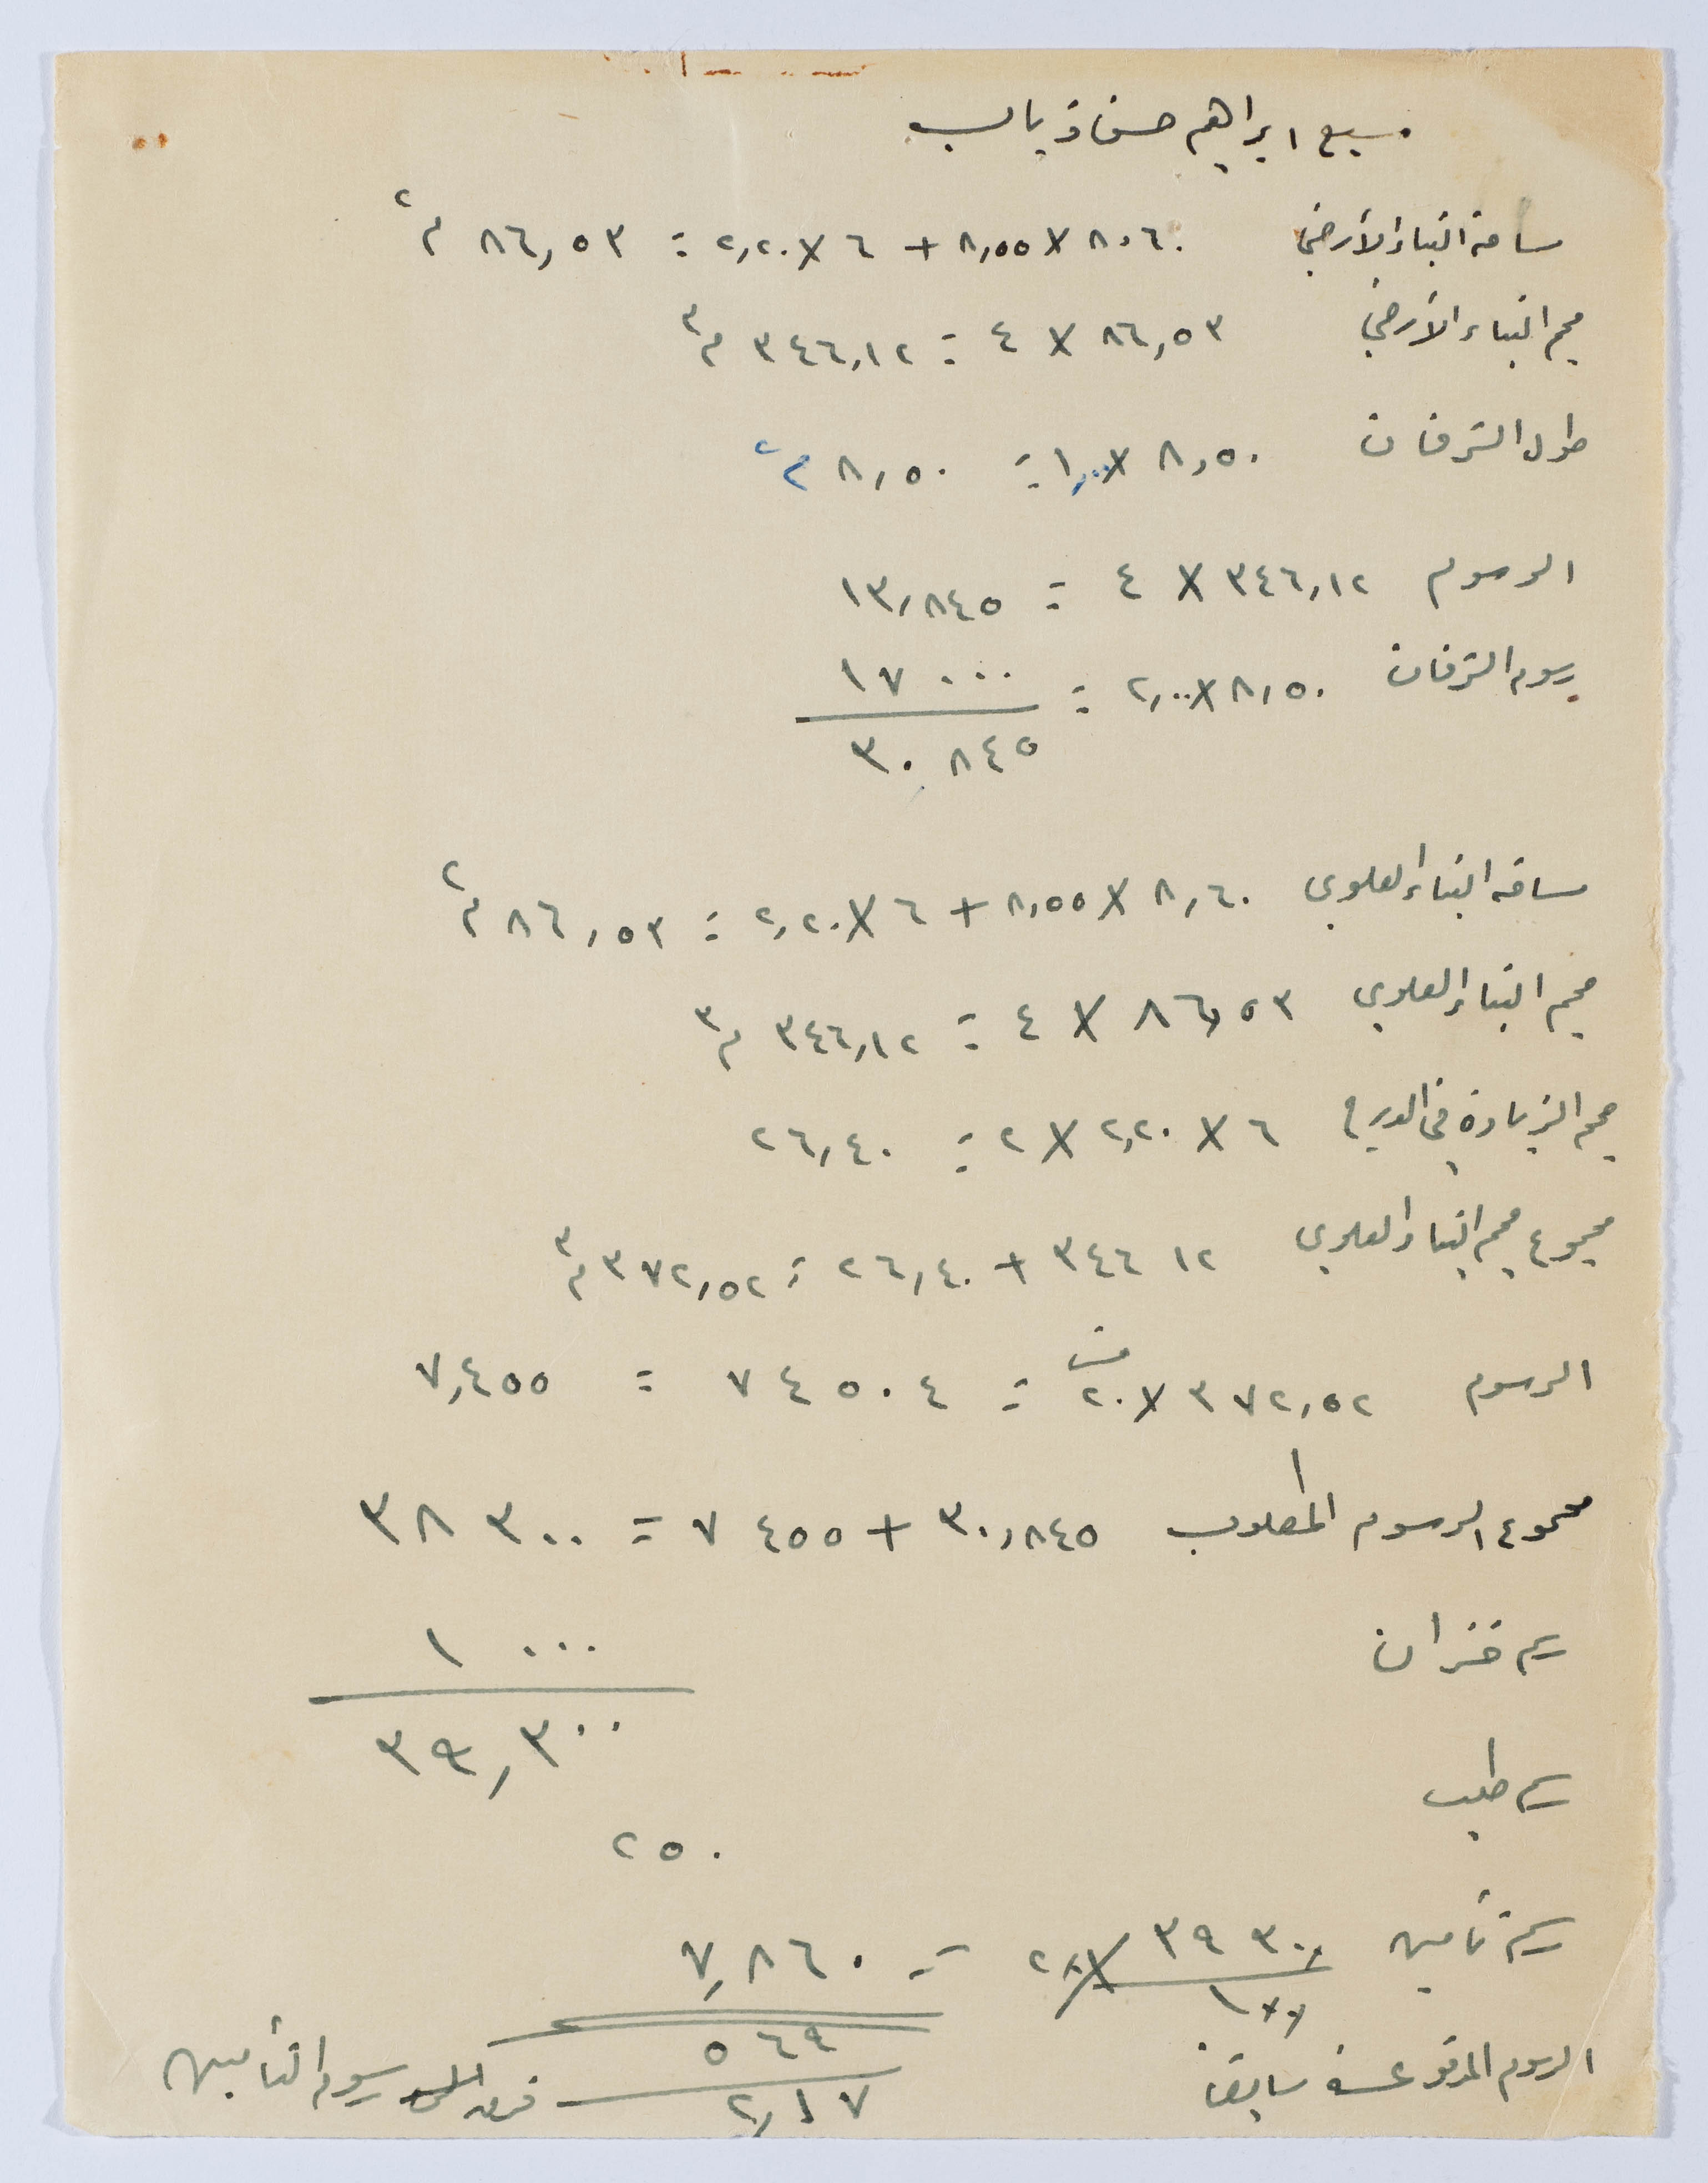 سميح ابراهيم حسن ذياب
مساحة البناء الأرضي ٨,٦٠ X ٨,٥٥ + ٦ X ٢,٢٠ = ٨٦,٥٣ م٢
حجم البناء الأرضي ٨٦,٥٣ X ٤ = ٣٤٦,١٢ م٣
طول الشرفات ٨,٥٠ X ١,٠٠ = ٨,٥٠ م٢
الرسوم ٣٤٦,١٢ X ٤ = ١٣,٨٤٥
رسوم الشرفات ٨,٥٠ X ٢,٠٠ = ١٧ ٠٠٠
٣٠ ٨٤٥
مساحة البناء العلوي ٨,٦٠ X ٨,٥٥ + ٦ X ٢,٢٠ = ٨٦,٥٣ م٢
حجم البناء العلوي ٨٦,٥٣ X ٤ = ٣٤٦,١٢ م٣
حجم الزيادة في الدرج ٦ X ٢,٢٠ X ٢ = ٢٦,٤٠
مجموع حجم البناء العلوي ٣٤٦ ١٢ + ٢٦,٤٠ = ٣٧٢,٥٢ م٣
الرسوم ٣٧٢,٥٢ X ٢٠ = ٧٤٥٠٤ = ٧,٤٥٥
مجموع الرسوم المطلوب ٣٠,٨٤٥ + ٧ ٤٥٥ = ٣٨ ٣٠٠
رسم خزان ١ ٠٠٠
٣٩,٣٠٠
رسم طلب
٢٥٠
رسم تأمين ٣٩ ٣٠٠ X ٢٠ / ١٠٠ = ٧,٨٦٠
الرسوم المدفوعة سابقا ٥ ٦٤٩
٢,١٧ فرق رسوم التأمين